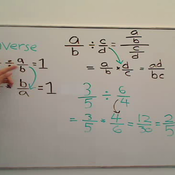 verse
a/b = 1
b/a = 1
a/b ÷ c/d = (a/b)/(c/d)
= a/b × d/c = ad/bc
3/5 ÷ 6/4
= 3/5 × 4/6 = 12/30 = 2/5